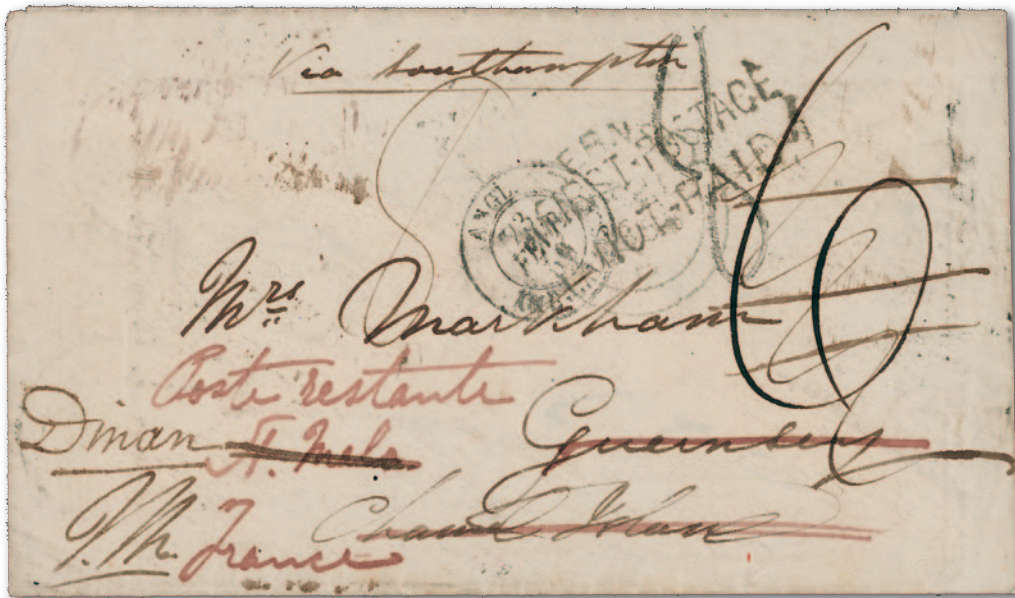 Via Southampton
POST-POSTAGE
NOT-PAID
ANGL.
Mrs Markham
Poste restante
Dinan St. Malo Guernsey
France Channel Islan
6